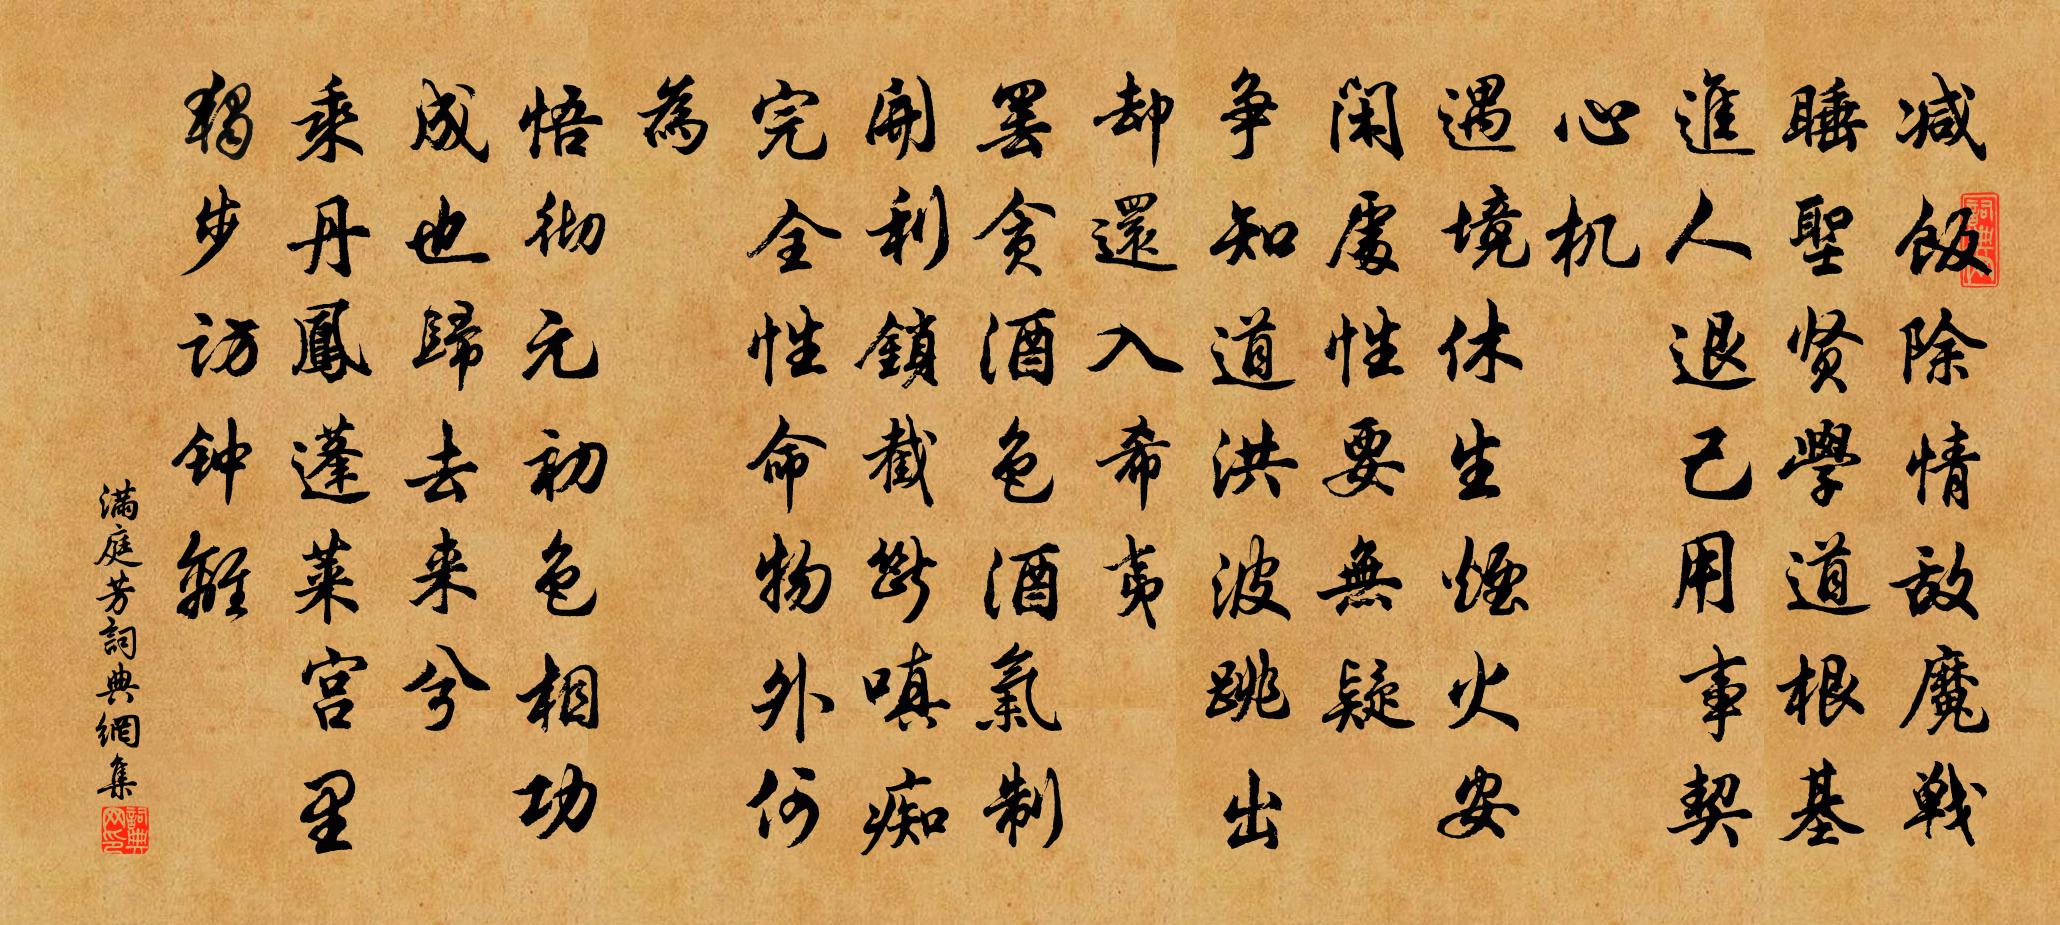 减飯除情敌魔戰
睡聖贤學道根基
進人退己用事契
心机
遇境休生煙火安
閑處性要無疑
争知道洪波跳出
却還入希夷
罢贪酒色酒氣制
開利鎖截斷嗔痴
完全性命物外何
為
悟彻元初色相功
成也歸去来兮
乘丹鳳蓬莱宫里
獨步访钟離
满庭芳詞典網集